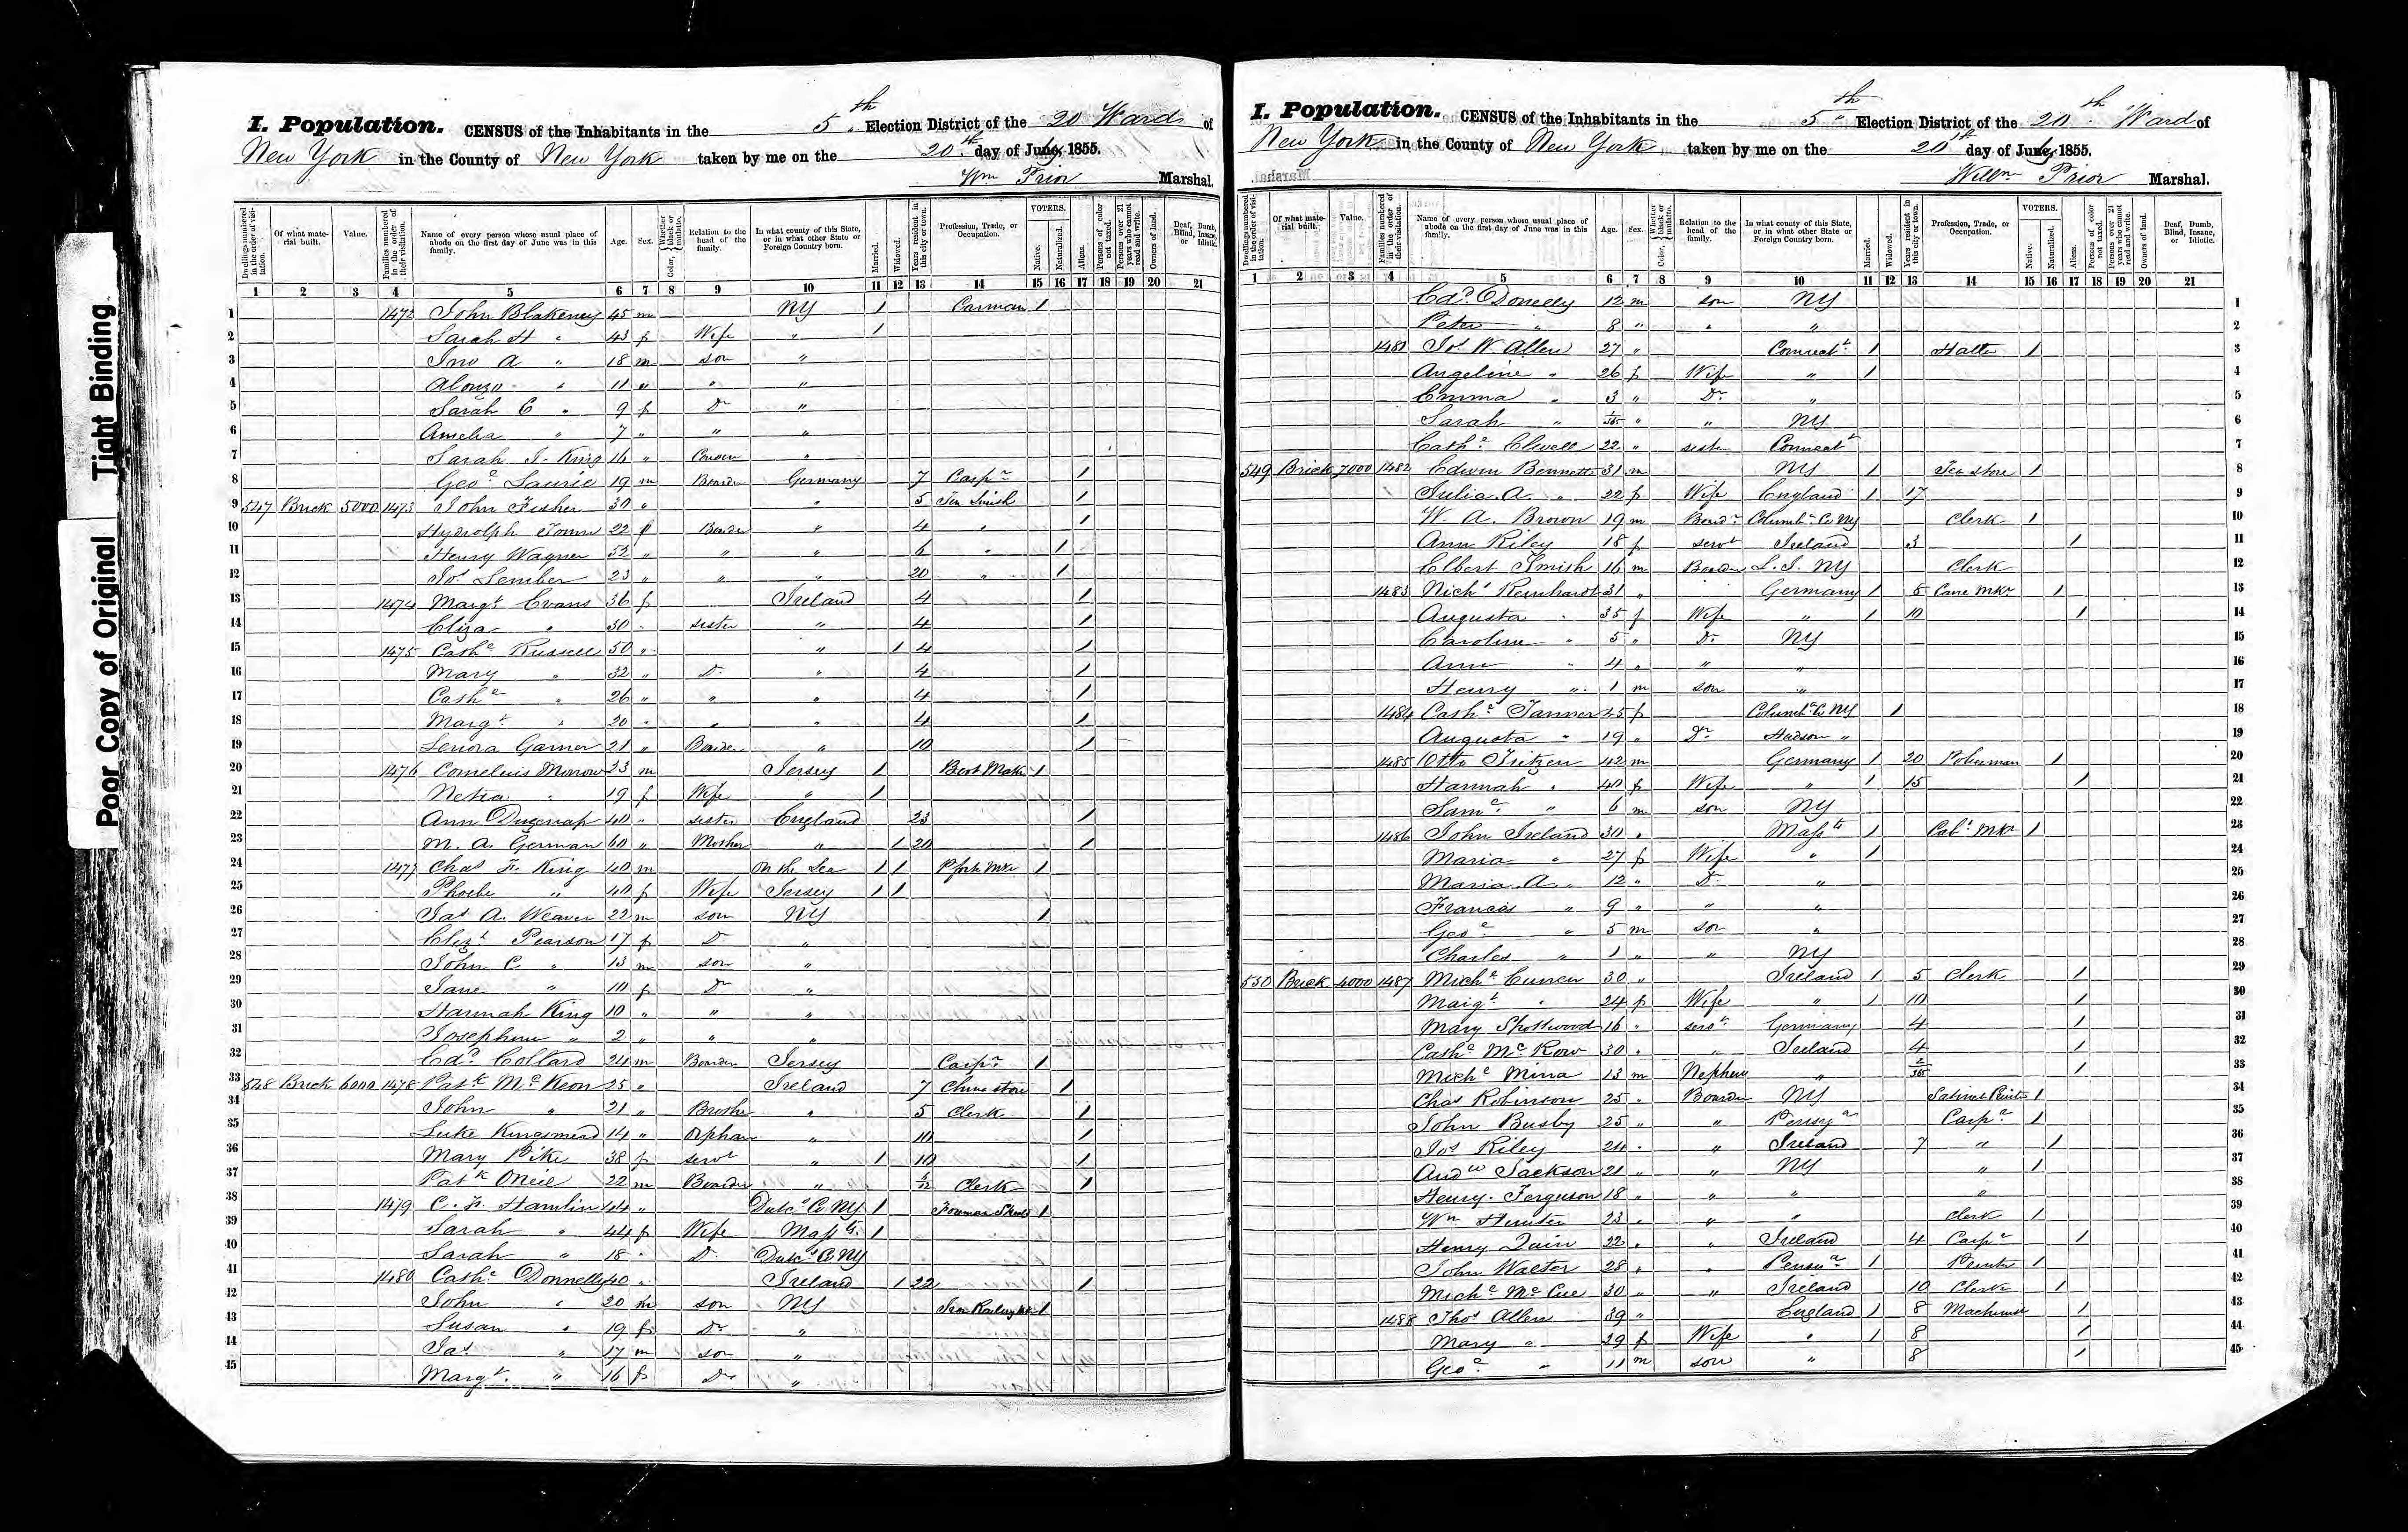 Poor Copy of Original
Tight Binding
I. Population. CENSUS of the Inhabitants in the 5th Election District of the 20 Ward of
New York in the County of New York taken by me on the 20th day of July, 1855.
Wm Prior Marshal.
Dwellings numbered in the order of visitation. Of what material built. Value. Families numbered in the order of their visitation. Name of every person whose usual place of abode on the first day of June was in this family. Age. Sex. Color, Whether black or mulatto. Relation to the head of the family. In what county of this State, or in what other State or Foreign Country born. Married. Widowed. Years resident in this city or town. Profession, Trade, or Occupation. VOTERS. Native. Naturalized. Aliens. Persons of color not taxed. Persons over 21 years who cannot read and write. Owners of land. Deaf, Dumb, Blind, Insane, or Idiotic.
1 2 3 4 5 6 7 8 9 10 11 12 13 14 15 16 17 18 19 20 21
1 1472 John Blakeney 45 m NY 1 Carman 1
2 Sarah H " 43 f Wife " 1
3 Jno A " 18 m son "
4 Alonzo " 11 " " "
5 Sarah C " 9 f Dr "
6 Amelia " 7 " " "
7 Sarah J. King 16 " Cousin "
8 Geoe Laurie 19 m Boarder Germany 7 Carpr 1
9 547 Brick 5000 1473 John Fisher 30 " " 5 Tin Smith 1
10 22 Boarder " 4 " 1
11 Henry Wagner 32 " " " 6 " 1
12 Jos Lember 23 " " " 20 " 1
13 1474 Margt Evans 36 f Ireland 4 1
14 Eliza " 30 " sister " 4 1
15 1475 Cathe Russell 50 " " 1 4 1
16 Mary " 32 " D " 4 1
17 Cathe " 26 " " " 4 1
18 Margt " 20 " " " 4 1
19 Lenora Garner 21 " Boarder " 10 1
20 1476 Cornelius Morrow 23 m Jersey 1 Boot Maker 1
21 19 f Wife " 1
22 Ann 40 " sister England 23 1
23 M. A. German 60 " Mother " 1 20 1
24 1477 Chas F. King 40 m On the Sea 1 1 1
25 Phoebe " 40 f Wife Jersey 1 1
26 Jas A. Weaver 22 m son NY 1
27 Elizt Pearson 17 f D "
28 John C " 13 m son "
29 Jane " 10 f Dr "
30 Hannah King 10 " " "
31 Josephine " 2 " " "
32 Edd Collard 24 m Boarder Jersey Carpr 1
33 548 Brick 6000 1478 Patk McKeon 25 " Ireland 7 China store 1
34 John " 21 " Brother " 5 Clerk 1
35 Luke Kingsmead 14 " Orphan " 10 1
36 Mary Pike 38 f servt " 1 10 1
37 Patk ONeil 22 m Boarder " Clerk 1
38 1479 C. F. Hamlin 44 " Dutcs Co NY 1 1
39 Sarah " 44 f Wife Massts 1
40 Sarah " 18 " D Dutcs Co NY
41 1480 Cathe Donnelly 40 " Ireland 1 22 1
42 John " 20 m son NY 1
43 Susan " 19 f Dr "
44 Jas " 17 m son "
45 Margt " 16 f Dr "
I. Population. CENSUS of the Inhabitants in the 5th Election District of the 20th Ward of
New York in the County of New York taken by me on the 20 day of July, 1855.
Willm Prior Marshal.
Dwellings numbered in the order of visitation. Of what material built. Value. Families numbered in the order of their visitation. Name of every person whose usual place of abode on the first day of June was in this family. Age. Sex. Color, Whether black or mulatto. Relation to the head of the family. In what county of this State, or in what other State or Foreign Country born. Married. Widowed. Years resident in this city or town. Profession, Trade, or Occupation. VOTERS. Native. Naturalized. Aliens. Persons of color not taxed. Persons over 21 years who cannot read and write. Owners of land. Deaf, Dumb, Blind, Insane, or Idiotic.
1 2 3 4 5 6 7 8 9 10 11 12 13 14 15 16 17 18 19 20 21
Edd Donnelly 12 m son NY 1
Peter " 8 " " " 2
1481 Jos W. Allen 27 " Connectt 1 Hatter 1 3
Angeline " 26 f Wife " 1 4
Emma " 3 " Dr " 5
Sarah " 1/365 " " NY 6
Cathe Elwell 22 " sister Connectt 7
549 Brick 7000 1482 Edwin Bennett 31 m NY 1 Tea store 1 8
Julia. A. " 22 f Wife England 1 17 9
W. A. Brown 19 m Boardr Columba Co NY Clerk 1 10
Ann Riley 18 f servt Ireland 3 1 11
Elbert Smith 16 m Boarder L. I. NY Clerk 12
1483 Nichs Reinhardt 31 " Germany 1 8 Cane Mkr 1 13
Augusta " 35 f Wife " 1 10 1 14
Caroline " 5 " Dr NY 15
Ann " 4 " " " 16
Henry " 1 m son " 17
1484 Cathe Tanner 45 f Columba Co NY 1 18
Augusta " 19 " Dr Hudson " 19
1485 Otto Fritzen 42 m Germany 1 20 Policeman 1 20
Hannah " 40 f Wife " 1 15 1 21
Saml " 6 m son NY 22
1486 John Ireland 30 " Massts 1 Cabt Mkr 1 23
Maria " 27 f Wife " 1 24
Maria. A. " 12 " Dr " 25
Frances " 9 " " " 26
Geoe " 5 m son " 27
Charles " 1 " " NY 28
550 Brick 4000 1487 Miche 30 " Ireland 1 5 Clerk 1 29
Margt " 24 f Wife " 1 10 1 30
Mary Spottwood 16 " servt Germany 4 1 31
Cathe McKow 30 " " Ireland 4 1 32
Miche Mina 13 m Nephew " 2/365 1 33
Chas Robinson 25 " Boarder NY 1 34
John Busby 25 " " Pensya Carpr 1 35
Jos Riley 24 " " Ireland 7 " 1 36
Andw Jackson 21 " " NY " 1 37
Henry. Ferguson 18 " " " " 38
Wm Hunter 23 " " " Clerk 1 39
Henry Quin 22 " " Ireland 4 Carpr 1 40
John Walter 28 " " Pensya 1 Printer 1 41
Miche McCue 30 " " Ireland 10 Clerk 1 42
1488 Thos Allen 39 " England 1 8 Machinist 1 43
Mary " 29 f Wife " 1 8 1 44
Geoe " 11 m son " 8 1 45